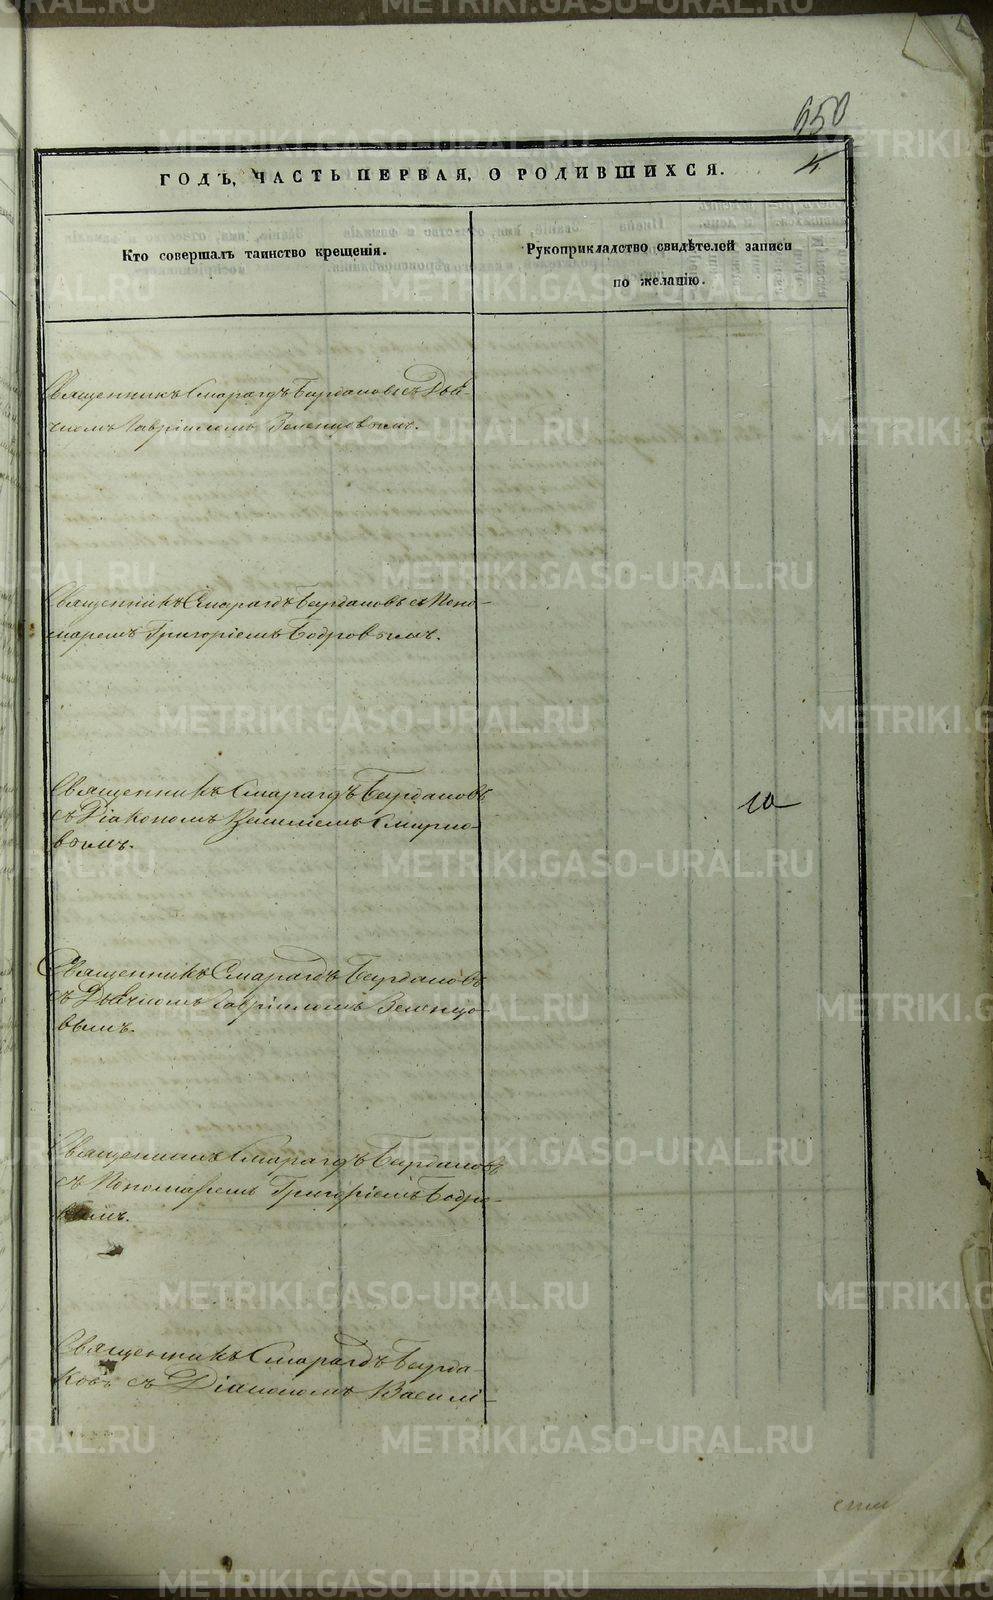 950
4
ГОДЪ, ЧАСТЬ ПЕРВАЯ, О РОДИВШИХСЯ.
Кто совершалъ таинство крещенія.
Рукоприкладство свидѣтелей записи
по желанію.
Священникъ Смарагдъ Бурдаковъ съ Дья-
чкомъ Гавріиломъ Зеленцовымъ.
Священникъ Смарагдъ Бурдаковъ съ Поно-
маремъ Григоріемъ Бодровымъ.
Священникъ Смарагдъ Бурдаковъ
съ Діакономъ Василіемъ Смирно-
вымъ.
Священникъ Смарагдъ Бурдаковъ
съ Дьячкомъ Гавріиломъ Зеленцо-
вымъ.
Священникъ Смарагдъ Бурдаковъ
съ Пономаремъ Григоріемъ Бодро-
вымъ.
Священникъ Смарагдъ Бурда-
ковъ съ Діакономъ Василі-
METRIKI.GASO-URAL.RU